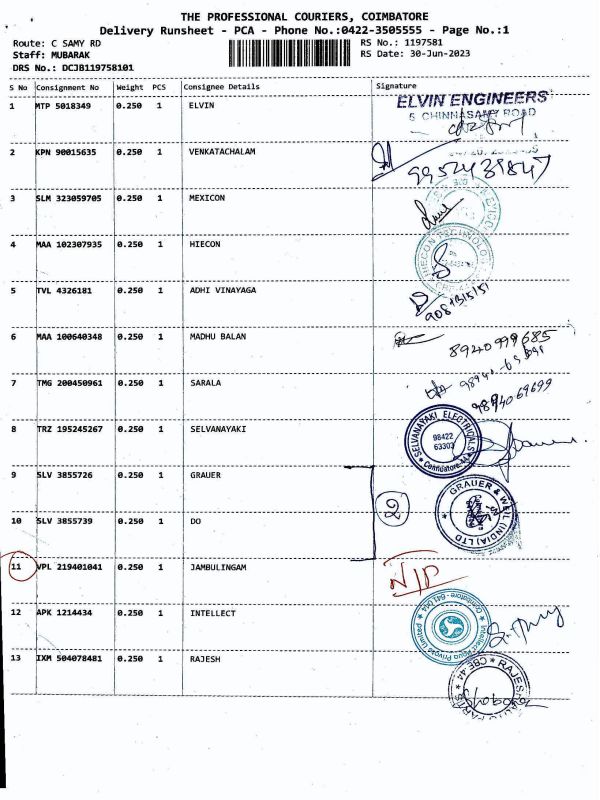 THE PROFESSIONAL COURIERS, COIMBATORE
Delivery Runsheet - PCA - Phone No.:0422-3505555 - Page No.:1
Route: C SAMY RD RS No.: 1197581
Staff: MUBARAK RS Date: 30-Jun-2023
DRS No.: DCJB119758101
S No Consignment No Weight PCS Consignee Details Signature
1 MTP 5018349 0.250 1 ELVIN ELVIN ENGINEERS
5 CHINNASAMY ROAD
2 KPN 90015635 0.250 1 VENKATACHALAM
3 SLM 323059705 0.250 1 MEXICON
4 MAA 102307935 0.250 1 HIECON HIECON TECHNOLO
5 TVL 4326181 0.250 1 ADHI VINAYAGA
6 MAA 100640348 0.250 1 MADHU BALAN 8940999685
7 TMG 200450961 0.250 1 SARALA
9894069699
8 TRZ 195245267 0.250 1 SELVANAYAKI SELVANAYAKI ELECTRICALS
98422
63303
Coimbatore-44
9 SLV 3855726 0.250 1 GRAUER GRAUER & WEIL (INDIA) LTD
10 SLV 3855739 0.250 1 DO
11 VPL 219401041 0.250 1 JAMBULINGAM N/P
12 APK 1214434 0.250 1 INTELLECT Coimbatore - 641 044
Private Limited
13 IXM 504078481 0.250 1 RAJESH CBE-44 RAJESH